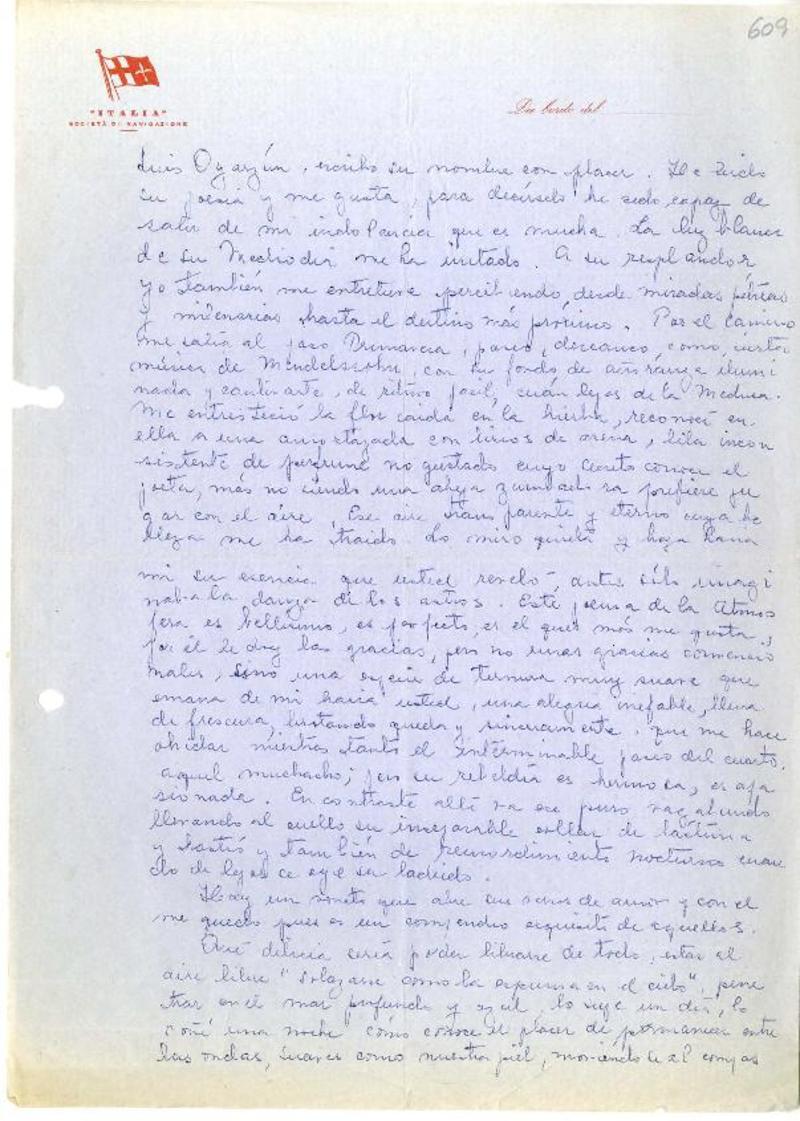 609
"ITALIA"
SOCIETÀ DI NAVIGAZIONE
Da bordo del
Luis Oyarzún, escribo su nombre con placer. He leído
su poesía y me gusta, para decírselo he sido capaz de
salir de mi indolencia que es mucha. La luz blanca
de su Mediodía me ha invitado. A su resplandor,
yo también me entretuve percibiendo, desde miradas pétreas
y milenarias hasta el destino más próximo. Por el camino
me salía al paso Primavera, paseo, descanso, como cierta
música de Mendelssohn, con su fondo de añoranza ilumi
nada y cantante, de ritmo fácil, cuán lejos de la Medusa.
Me entristeció la flor caída en la hierba, reconocí en
ella a una amortajada con lirios de arena, lila incon
sistente de perfume no gustado cuyo secreto conoce el
poeta, más no siendo una abeja zumbadora prefiere ju
gar con el aire. Ese aire transparente y eterno cuya be
lleza me ha traído. Lo miro quieta y hago llana
mi su esencia que usted reveló, antes sólo imagi
naba la danza de los astros. Este poema de la Atmós
fera es bellísimo, es perfecto, es el que más me gusta,
por él le doy las gracias, pero no unas gracias convencio
nales, sino una especie de ternura muy suave que
emana de mi hacia usted, una alegría inefable, llena
de frescura, brotando queda y sinceramente, que me hace
olvidar mientras tanto el interminable paseo del cuarto,
aquel muchacho; pero su rebeldía es hermosa, es apa
sionada. En contraste allí va ese perro vagabundo
llevando al cuello su inseparable collar de lástima
y hastío y también de remordimiento nocturno cuan
do de lejos se oye su ladrido.
Hay un soneto que abre sus venas de amor y con él
me quedo pues es un compendio exquisito de aquellos.
Qué delicia sería poder librarse de todo, estar al
aire libre "solazarse como la espuma en el cielo", pene
trar en el mar profundo y azul, lo supe un día, lo
soñé una noche como conoce el placer de permanecer entre
las ondas, suaves como nuestra piel, moviéndose al compás